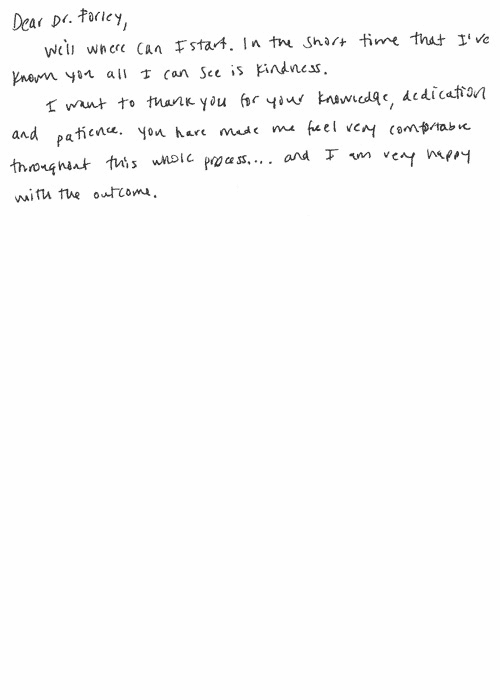 Dear Dr. Forley,
Well where can I start. In the short time that I've
known you all I can see is kindness.
I want to thank you for your knowledge, dedication
and patience. You have made me feel very comfortable
throughout this whole process.... and I am very happy
with the outcome.